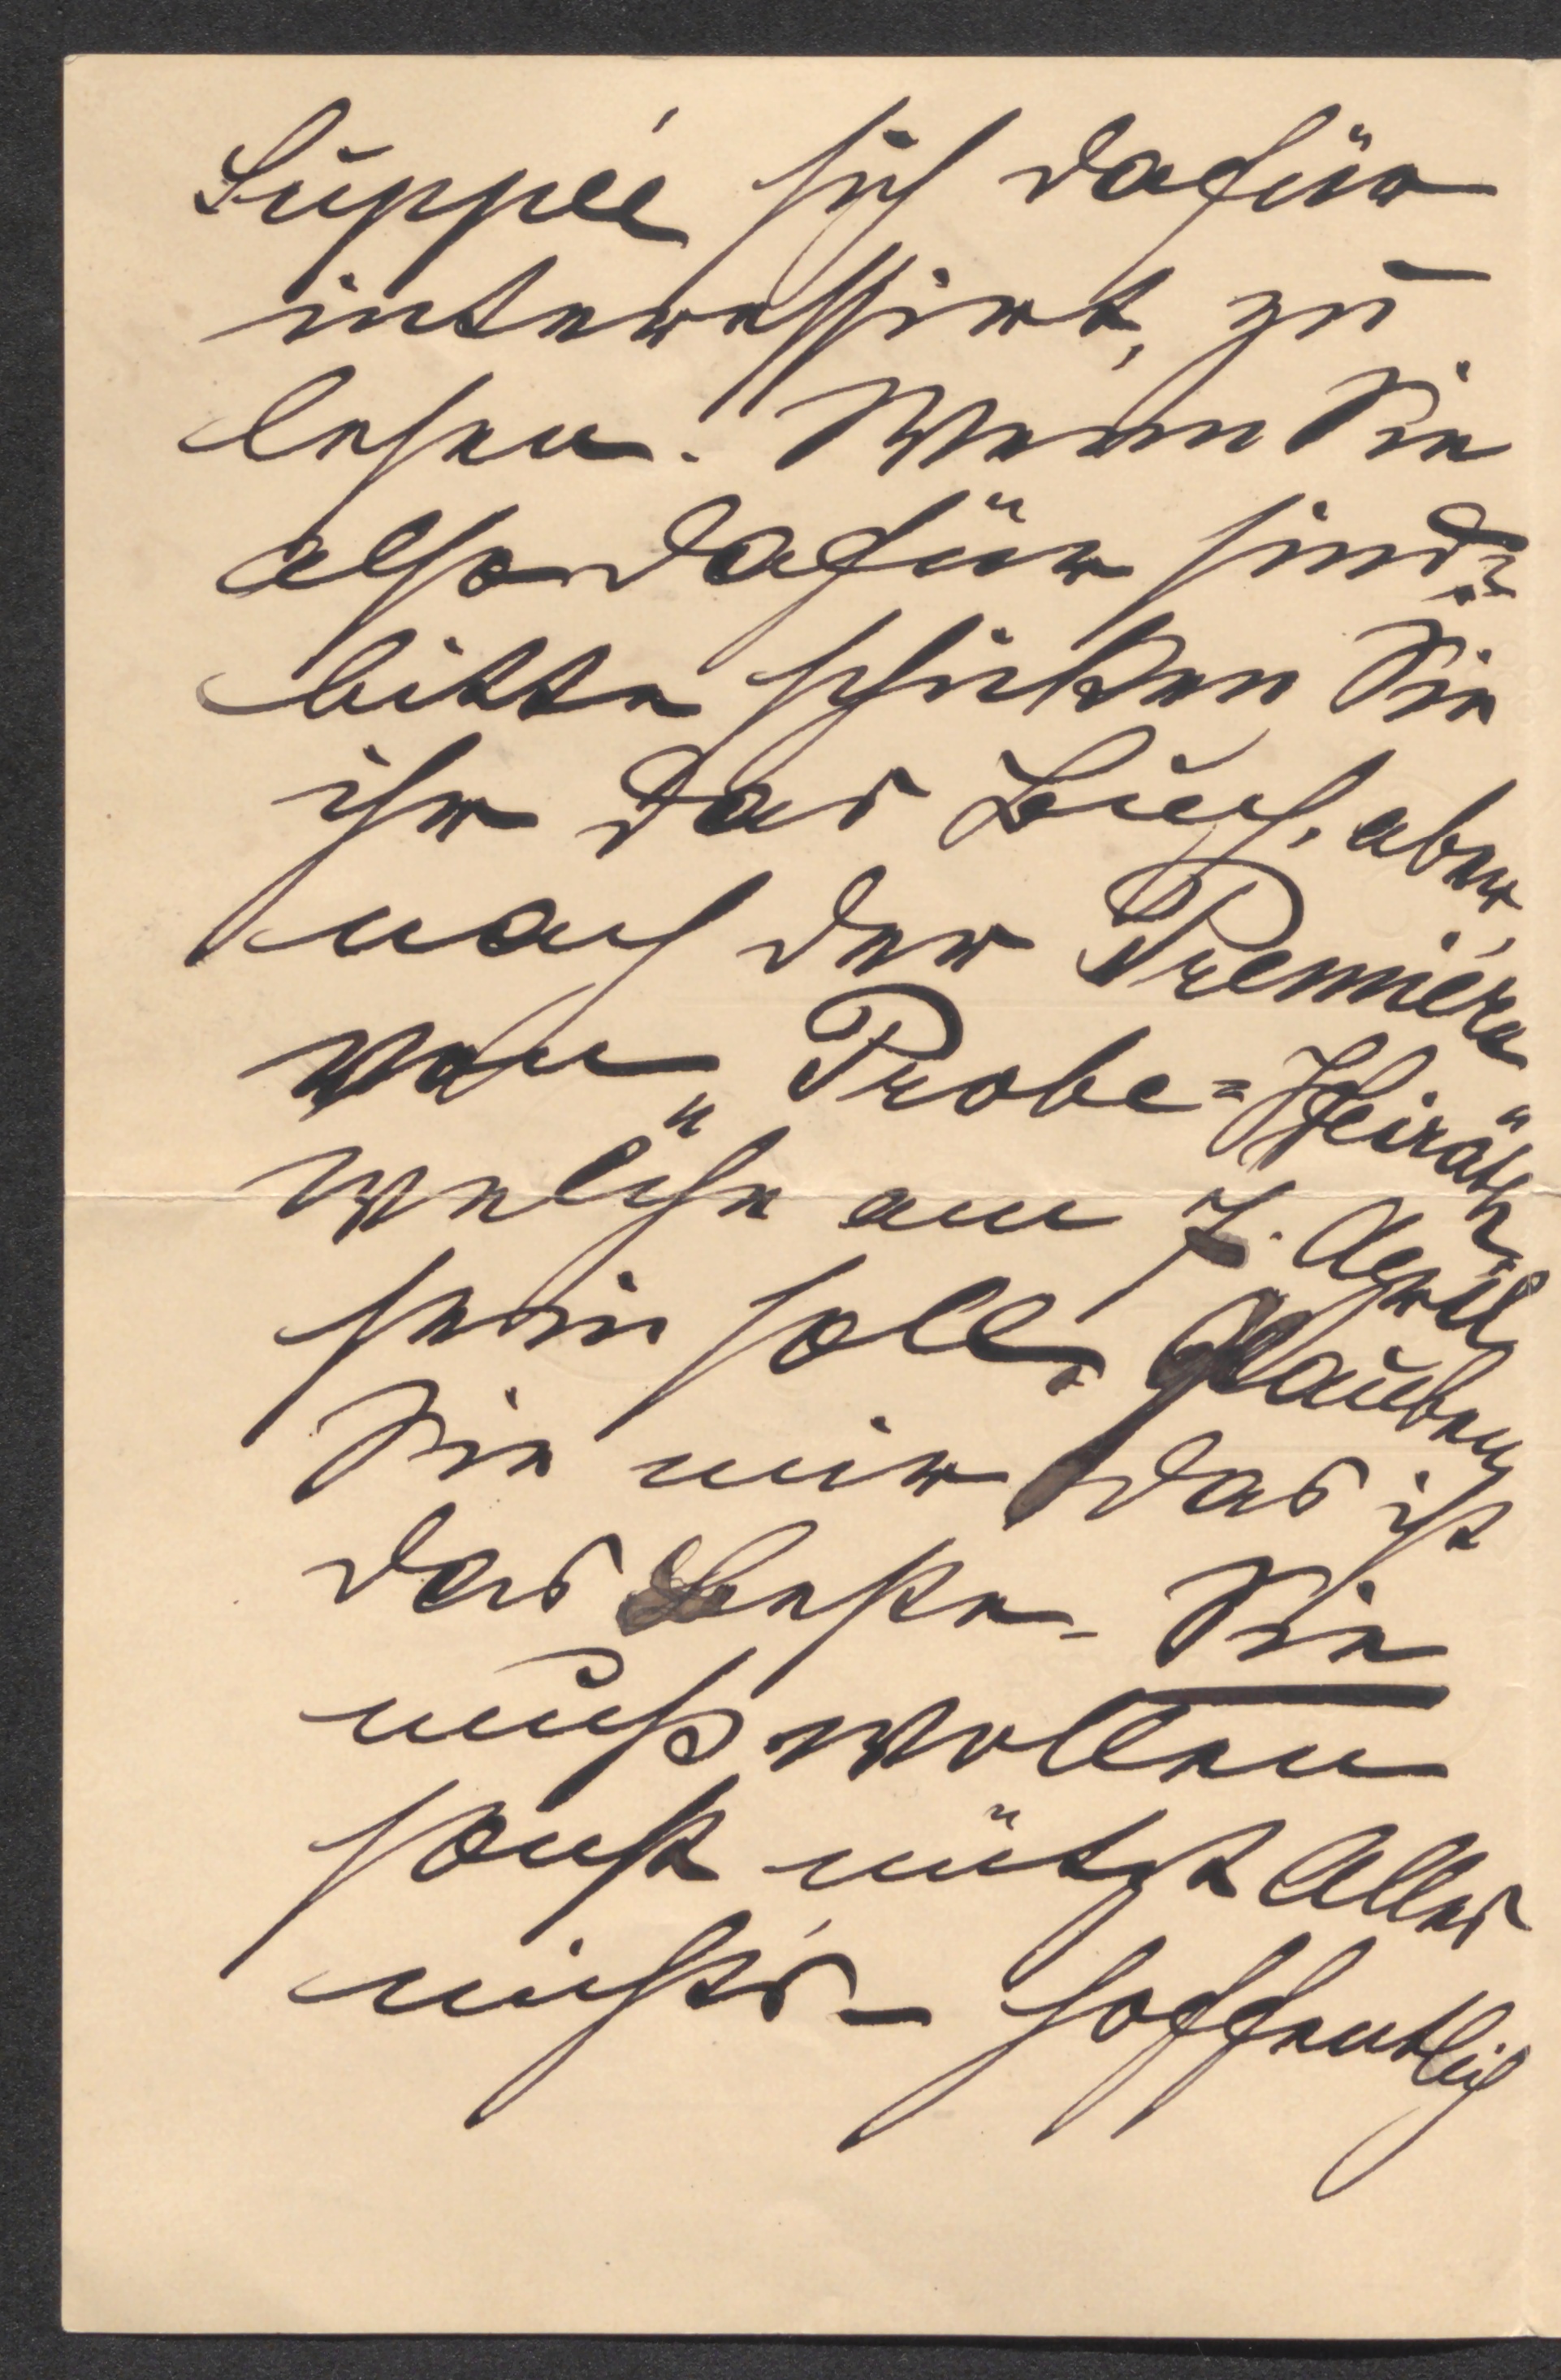 Suppée sich dafür
interessirt, zu
lesen. Wenn Sie
also dafür sind,
bitte schicken Sie
ihr das Buch, aber
nach der Première
von „Probe=Heirath"
welche am 7. April
sein soll, Glauben
Sie mir das ist
das Beste. Sie
muß wollen
sonst nützt Alles
nichts – hoffentlich